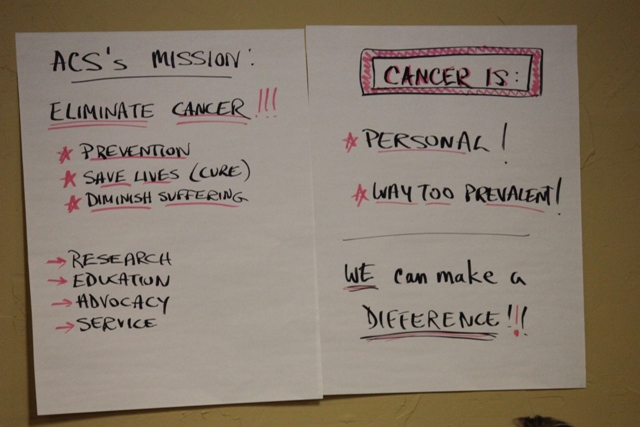 ACS's MISSION:
ELIMINATE CANCER!!!
PREVENTION
SAVE LIVES (CURE)
DIMINISH SUFFERING
→ RESEARCH
→ EDUCATION
→ ADVOCACY
→ SERVICE
CANCER IS:
PERSONAL!
WAY TOO PREVALENT!
WE can make a
DIFFERENCE!!!